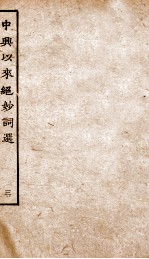 中興以來絕妙詞選
三